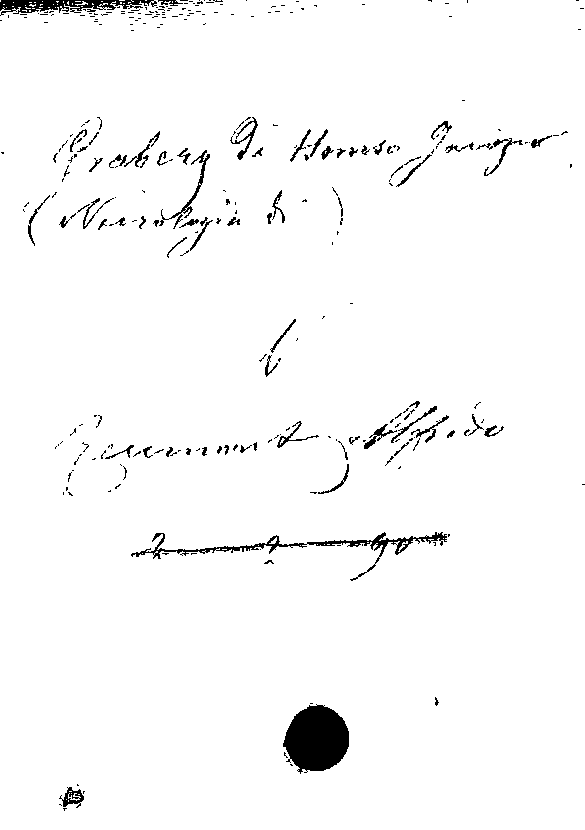 Graberg di Hemso Jacopo
(Necrologia di )
6
Reumont, Alfredo
2 2 90